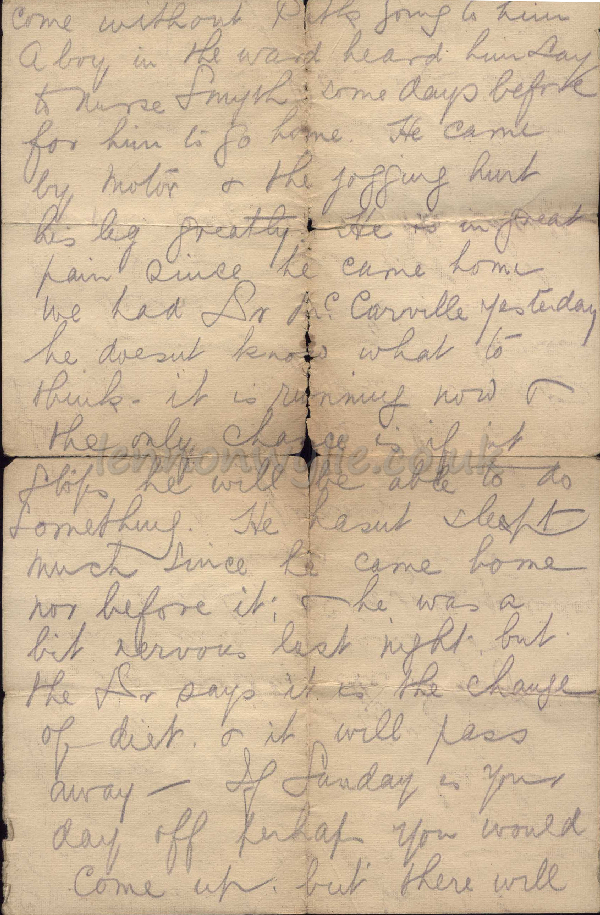 come without Path going to him
A boy in the ward heard him say
to Nurse Smyth some days before
for him to go home. He came
by motor & the jogging hurt
his leg greatly. He is in great
pain since he came home
we had Dr McCarville yesterday
he doesnt know what to
think - it is running now &
the only chance is if it
stops he will be able to do
something. He hasnt slept
much since he came home
nor before it; & he was a
bit nervous last night. but
the Dr says it is the change
of diet. & it will pass
away — If Sunday is your
day off perhap you would
come up. but there will
lennonwylie.co.uk